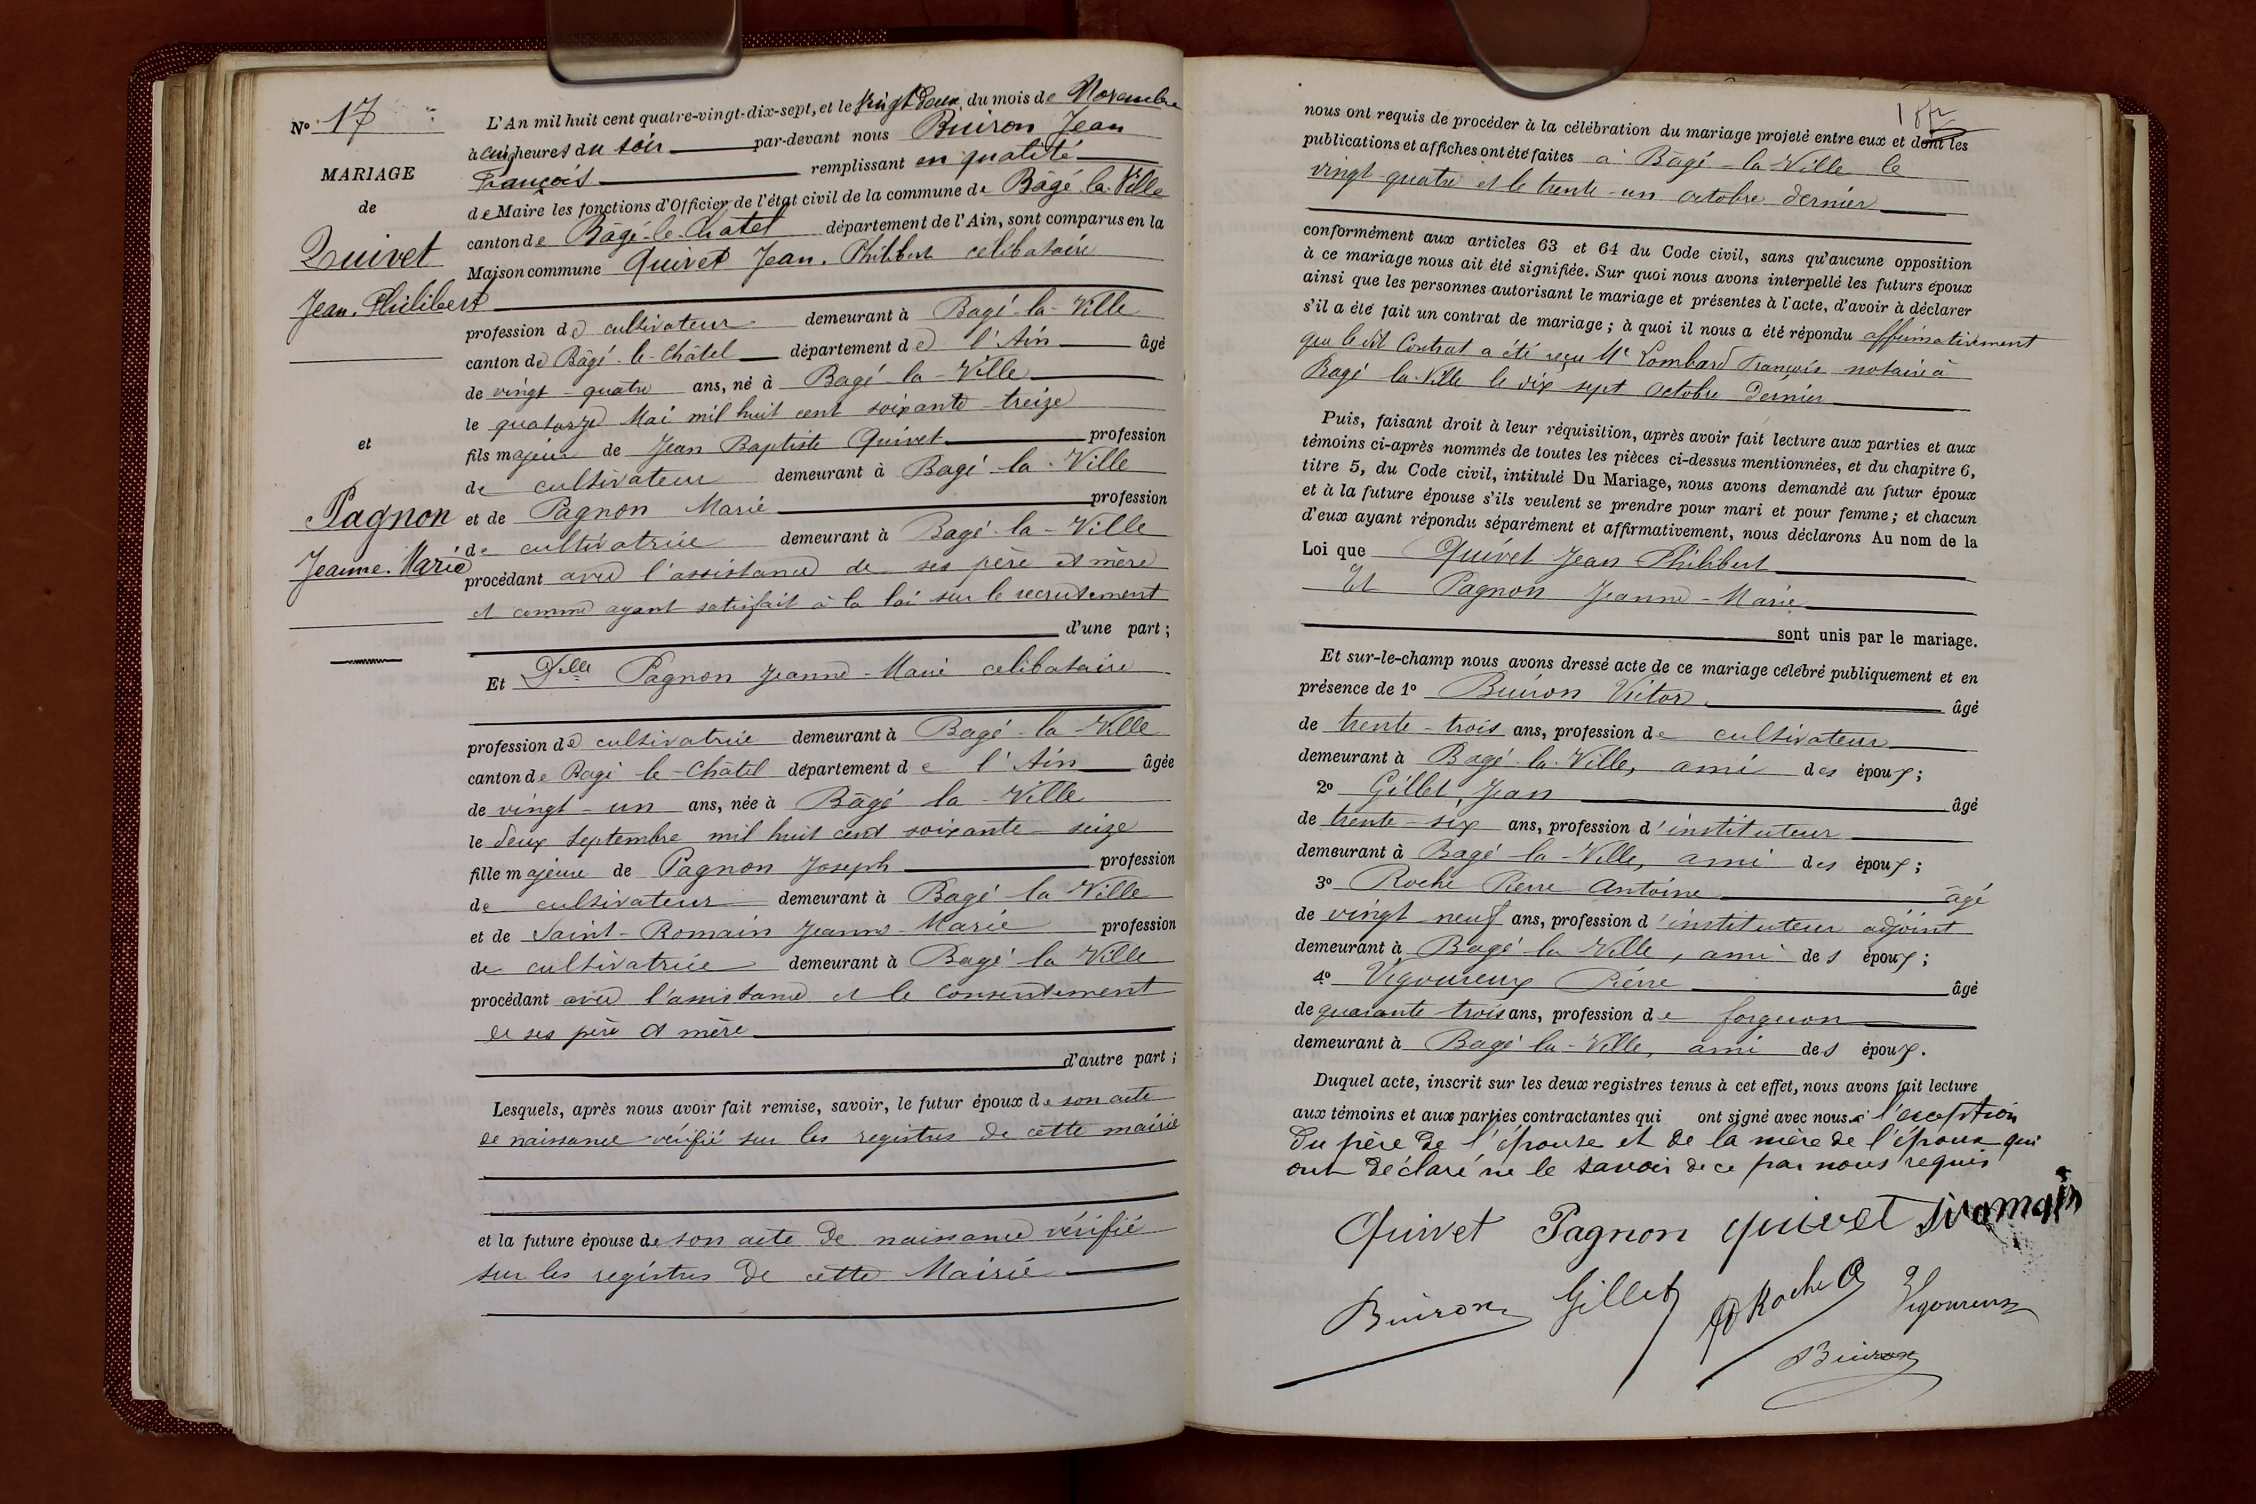 N° 17
MARIAGE
de
Quivet
Jean-Philibert
et
Pagnon
Jeanne-Marie
L'An mil huit cent quatre-vingt-dix-sept, et le vingt deux du mois de Novembre
à cinq heures du soir par-devant nous Buiron Jean
François remplissant en qualité
de Maire les fonctions d'Officier de l'état civil de la commune de Bâgé-la-Ville
canton de Bâgé-le-Châtel département de l'Ain, sont comparus en la
Maison commune Quivet Jean-Philibert célibataire
profession de cultivateur demeurant à Bagé-la-Ville
canton de Bâgé-le-Châtel département de l'Ain âgé
de vingt-quatre ans, né à Bagé-la-Ville
le quatorze Mai mil huit cent soixante-treize
fils majeur de Jean Baptiste Quivet profession
de cultivateur demeurant à Bagé-la-Ville
et de Pagnon Marie profession
de cultivatrice demeurant à Bagé-la-Ville
procédant avec l'assistance de ses père et mère
et comme ayant satisfait à la loi sur le recrutement
d'une part ;
Et Delle Pagnon Jeanne-Marie célibataire
profession de cultivatrice demeurant à Bagé-la-Ville
canton de Bagé-le-Châtel département de l'Ain âgée
de vingt-un ans, née à Bâgé-la-Ville
le deux Septembre mil huit cent soixante-seize
fille majeure de Pagnon Joseph profession
de cultivateur demeurant à Bagé la Ville
et de Saint-Romain Jeanne-Marie profession
de cultivatrice demeurant à Bagé la Ville
procédant avec l'assistance et le consentement
de ses père et mère
d'autre part ;
Lesquels, après nous avoir fait remise, savoir, le futur époux de son acte
de naissance vérifié sur les registres de cette mairie
et la future épouse de son acte de naissance vérifié
sur les registres de cette Mairie
nous ont requis de procéder à la célébration du mariage projeté entre eux et dont les
publications et affiches ont été faites à Bâgé-la-Ville le
vingt-quatre et le trente-un octobre dernier
conformément aux articles 63 et 64 du Code civil, sans qu'aucune opposition
à ce mariage nous ait été signifiée. Sur quoi nous avons interpellé les futurs époux
ainsi que les personnes autorisant le mariage et présentes à l'acte, d'avoir à déclarer
s'il a été fait un contrat de mariage ; à quoi il nous a été répondu affirmativement
que le dit Contrat a été reçu Me Lombard François notaire à
Bagé la-Ville le dix sept octobre dernier
Puis, faisant droit à leur réquisition, après avoir fait lecture aux parties et aux
témoins ci-après nommés de toutes les pièces ci-dessus mentionnées, et du chapitre 6,
titre 5, du Code civil, intitulé Du Mariage, nous avons demandé au futur époux
et à la future épouse s'ils veulent se prendre pour mari et pour femme ; et chacun
d'eux ayant répondu séparément et affirmativement, nous déclarons Au nom de la
Loi que Quivet Jean Philibert
Et Pagnon Jeanne-Marie
sont unis par le mariage.
Et sur-le-champ nous avons dressé acte de ce mariage célébré publiquement et en
présence de 1° Buiron Victor âgé
de trente-trois ans, profession de cultivateur
demeurant à Bagé-la-Ville, ami des époux ;
2° Gillet Jean âgé
de trente-six ans, profession d'instituteur
demeurant à Bagé-la-Ville, ami des époux ;
3° Roche Pierre Antoine âgé
de vingt neuf ans, profession d'instituteur adjoint
demeurant à Bagé la Ville, ami des époux ;
4° Vigoureux Pierre âgé
de quarante trois ans, profession de forgeron
demeurant à Bagé la-Ville, ami des époux.
Duquel acte, inscrit sur les deux registres tenus à cet effet, nous avons fait lecture
aux témoins et aux parties contractantes qui ont signé avec nous à l'exception
du père de l'épouse et de la mère de l'époux qui
ont déclaré ne le savoir de ce par nous requis
Quivet Pagnon quivet Sromain
Buiron Gillet Roche Vigoureux
Buiron